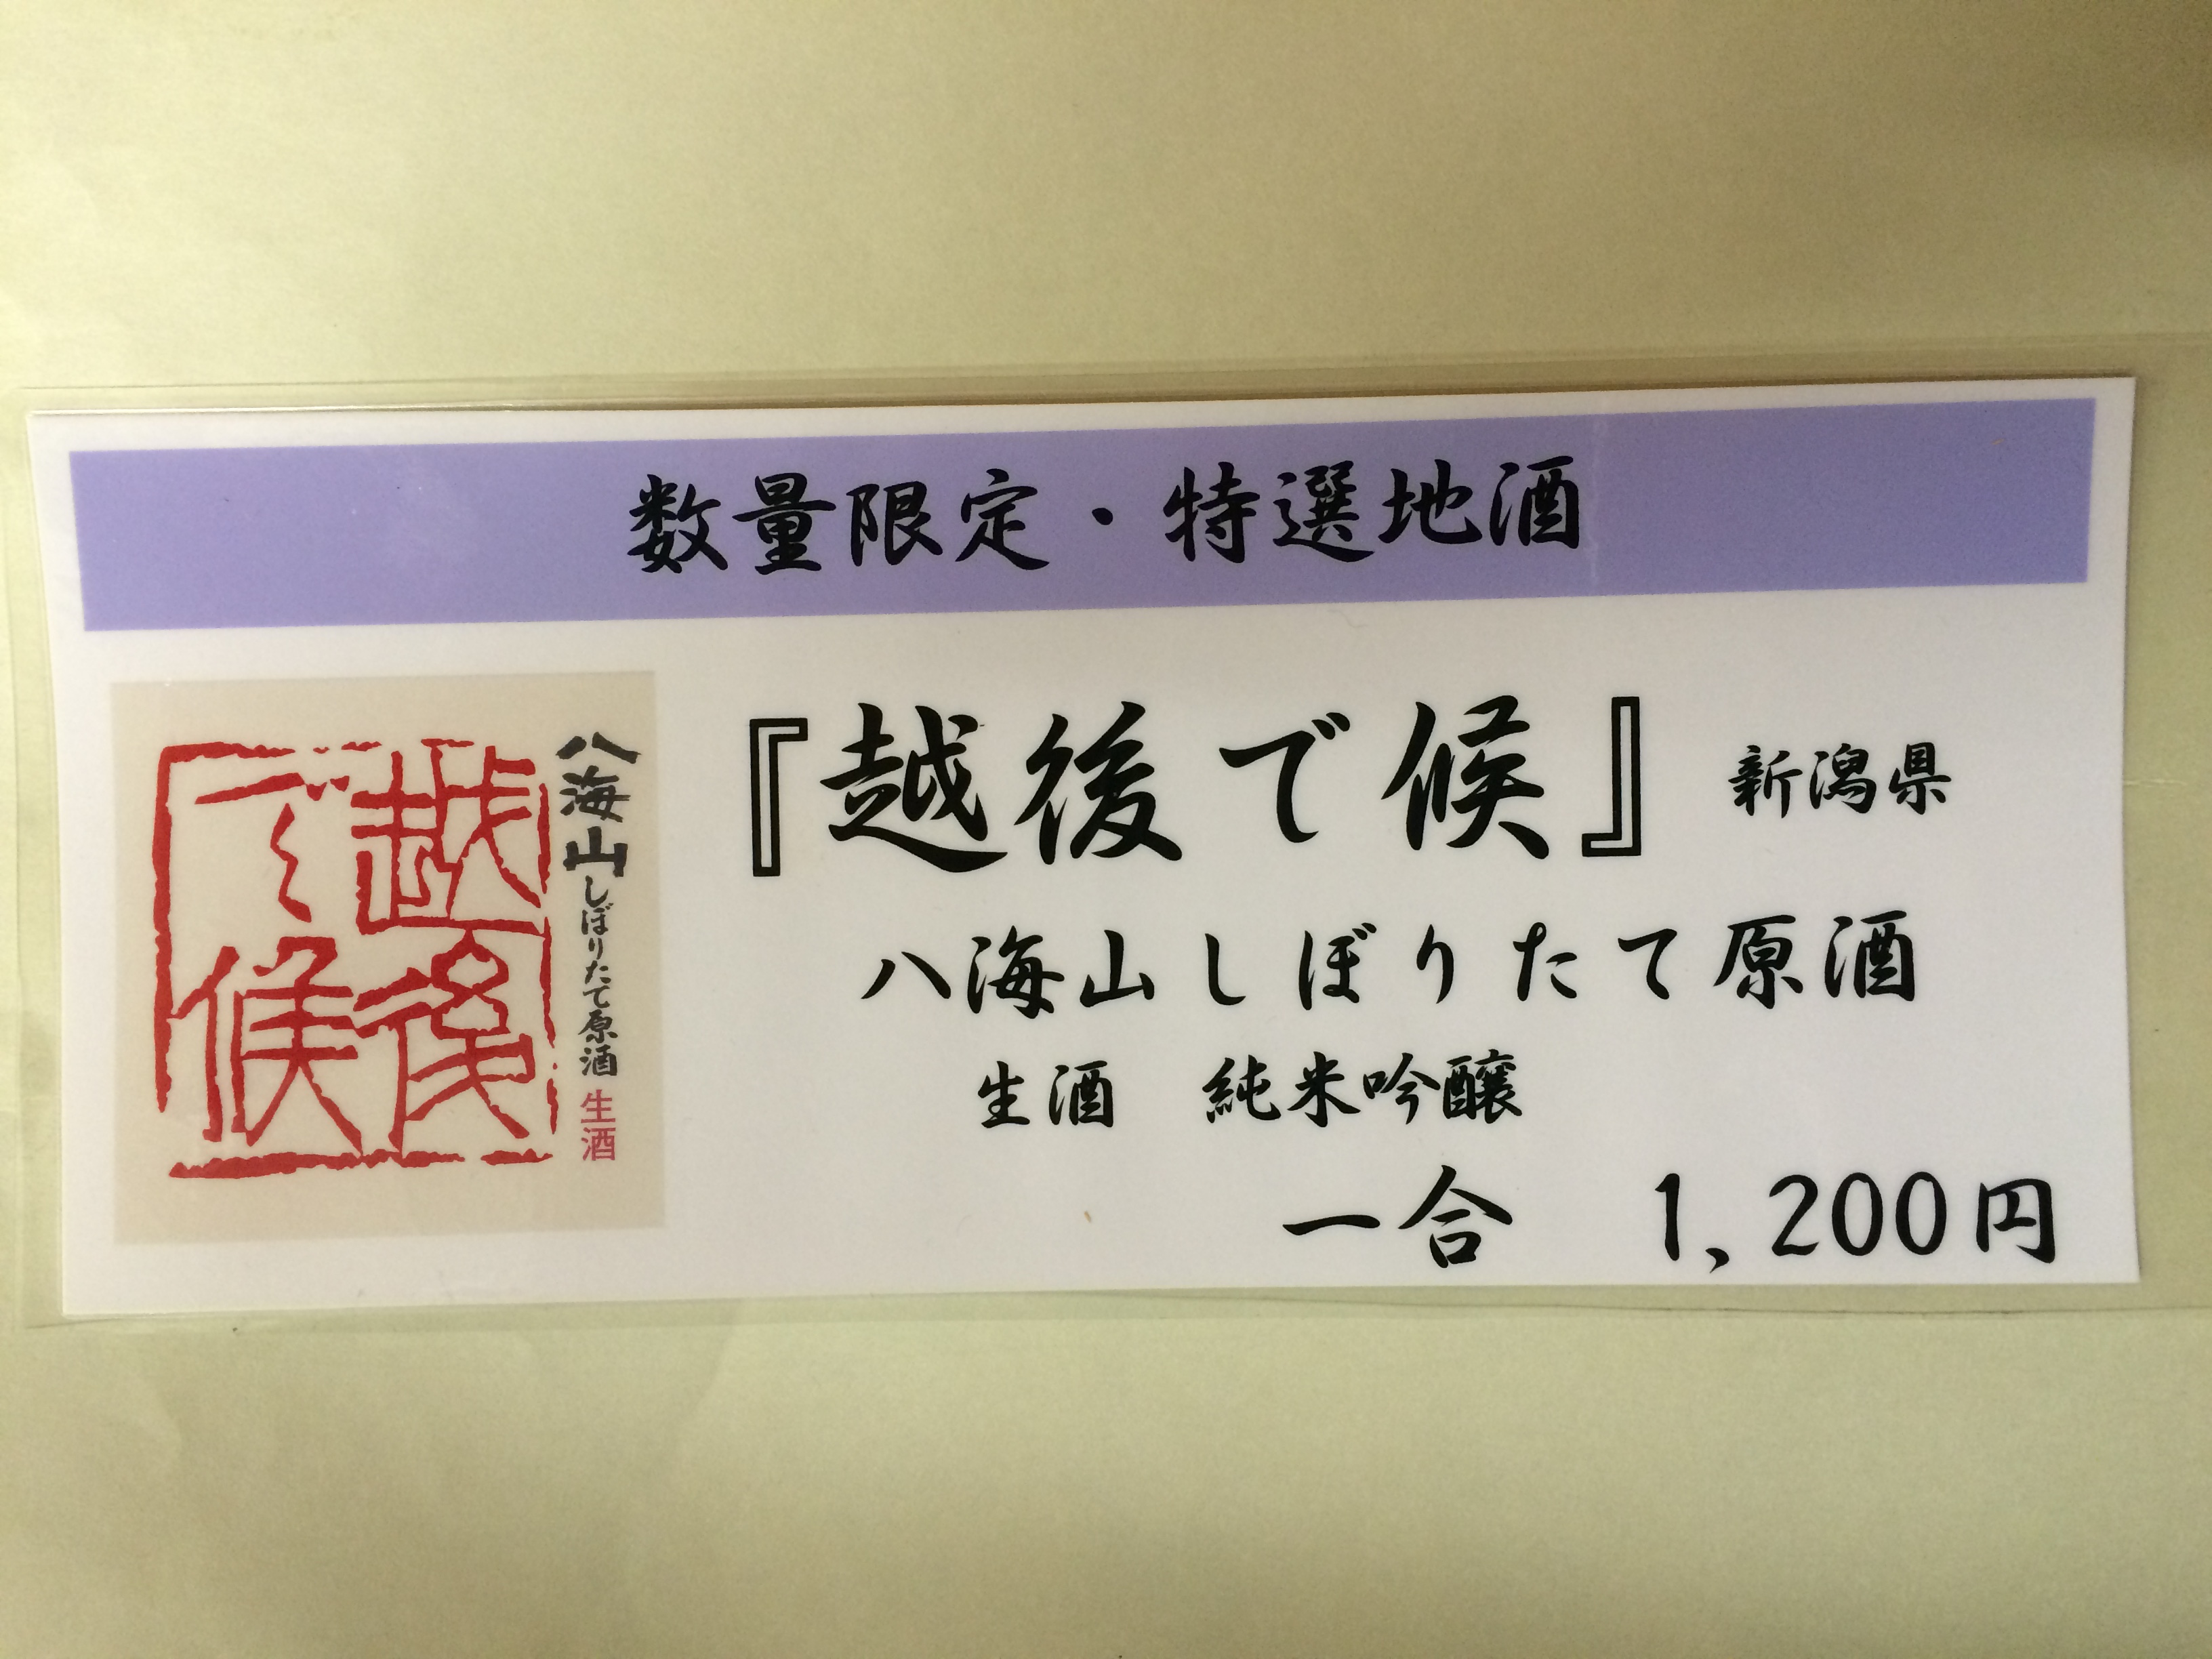 数量限定・特選地酒
『越後で候』 新潟県
八海山しぼりたて原酒
生酒 純米吟醸
一合 1,200円
越後
で候
八海山しぼりたて原酒生酒